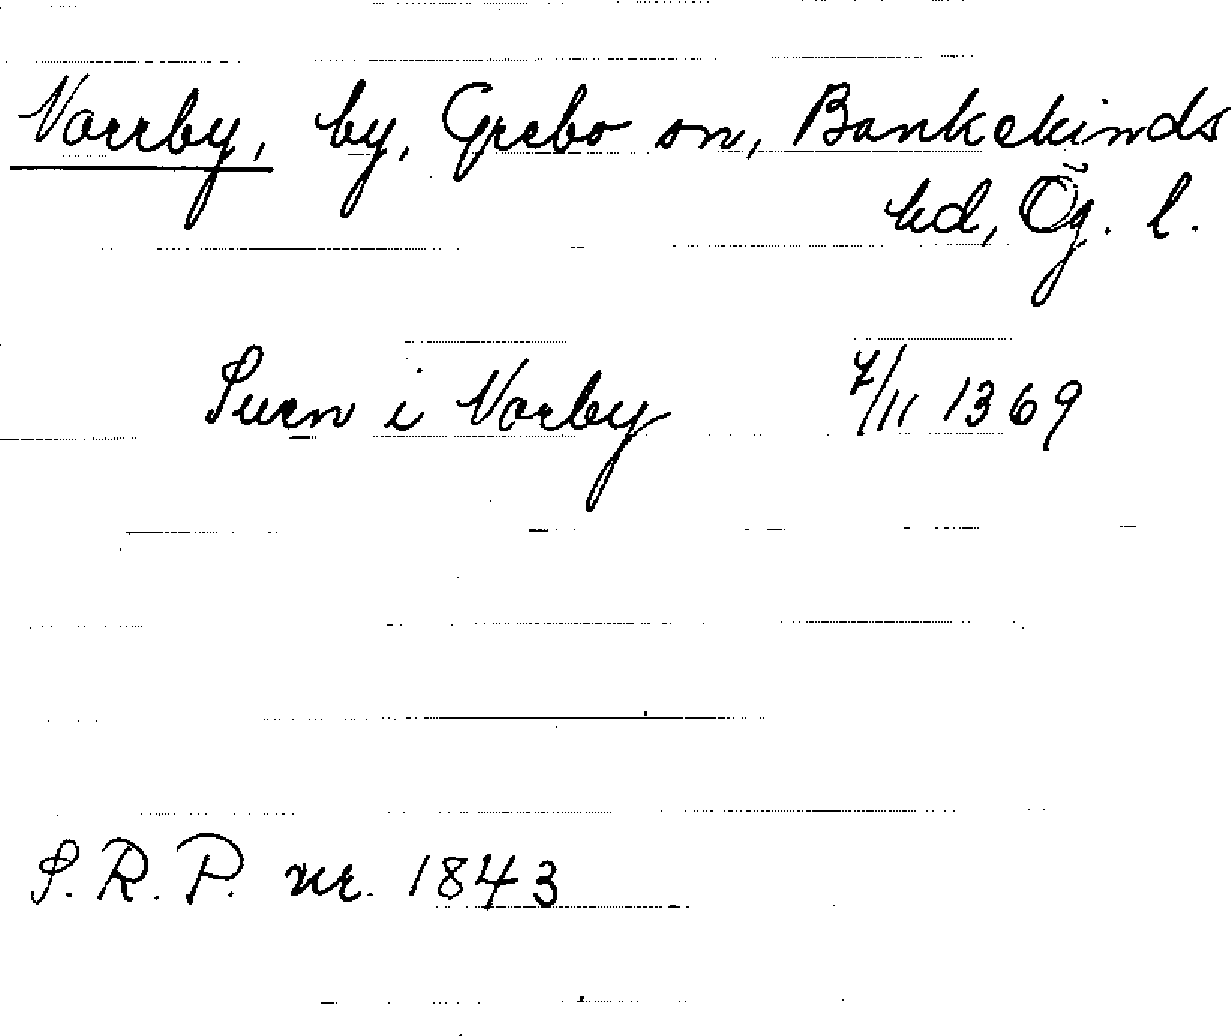 Norrby, by, Grebo sn, Bankekinds
hd, Ög. l.
Suen i Norby 7/11 1369
S. R. P. nr. 1843